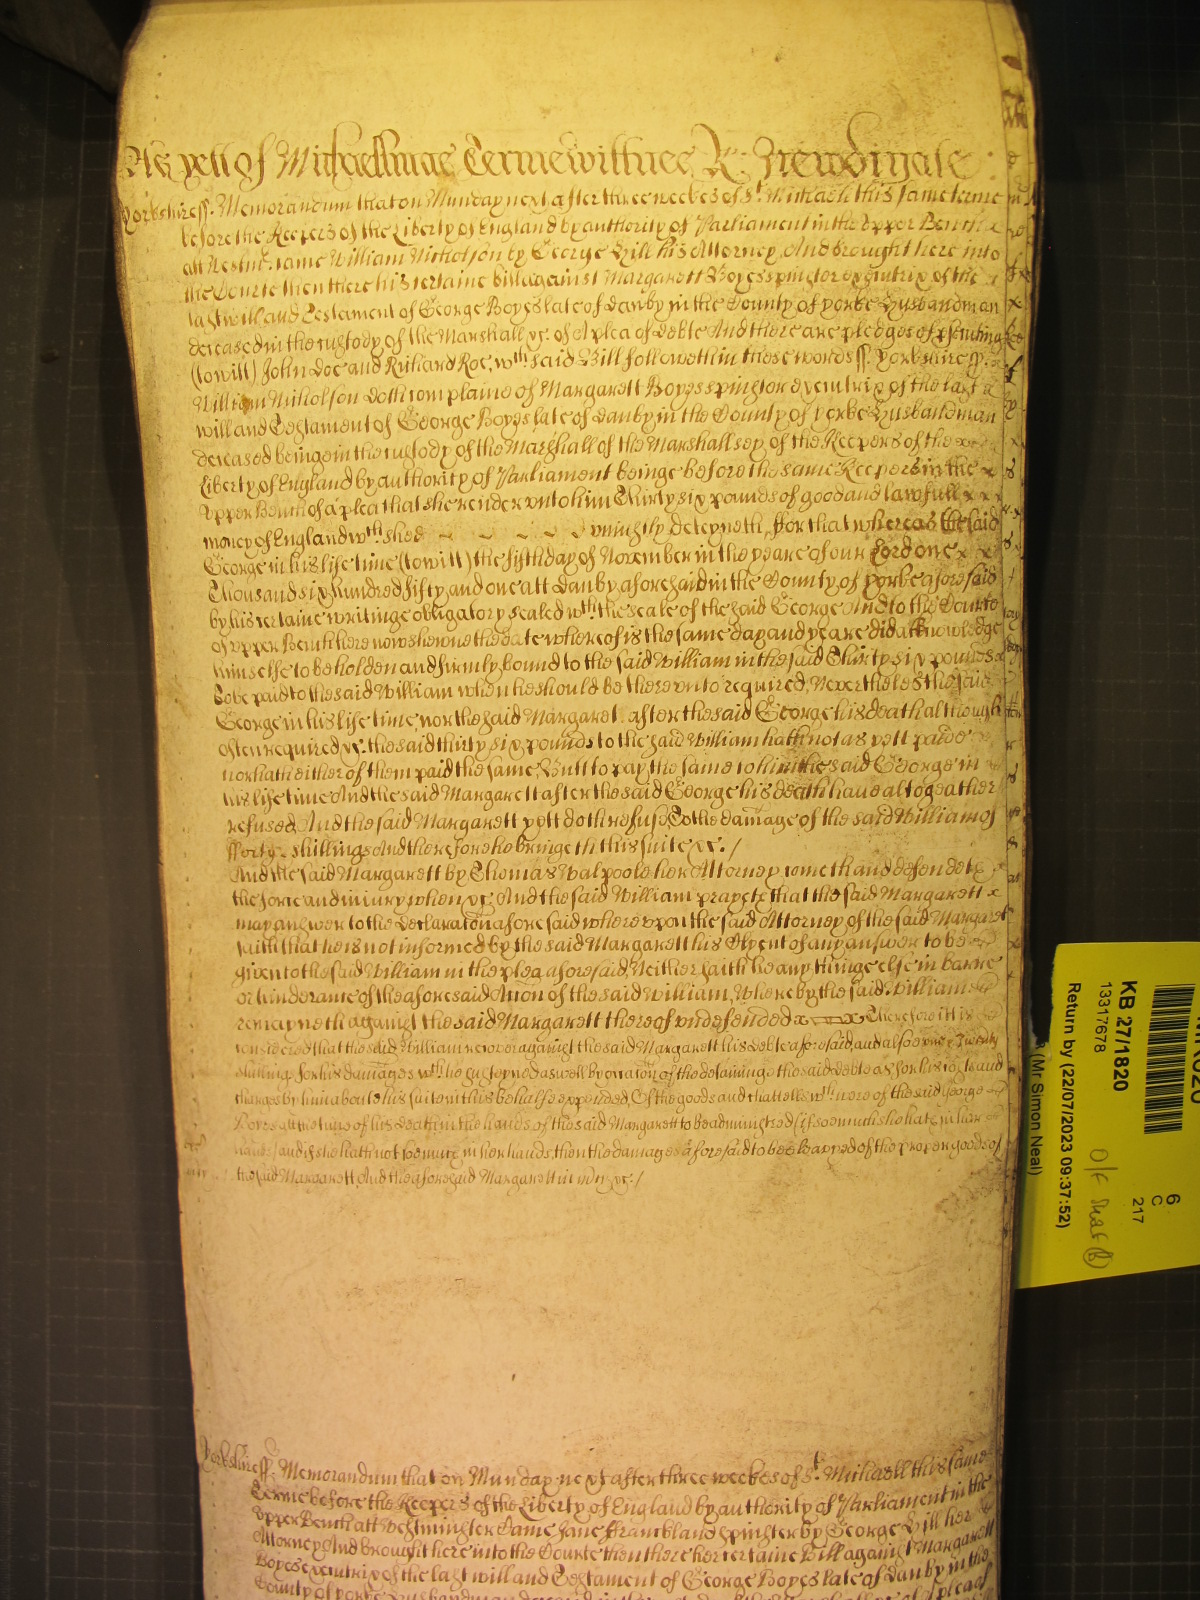 As yett of Michaellmas Terme wittnes R: Newdigate
Yorkshire ss. Memorandum that on Munday next after three weekes of St. Michaell this same terme
before the Keepers of the Liberty of England by authority of Parliament in the Upper Bench
att Westmr. came William Nicholson by George Gill his Attorney And brought here into
the Courte then there his certaine bill against Margarett Boyes spinster executrix of the
last will and Testament of George Boyes late of Danby in the County of yorke Husbandman
deceased in the custody of the Marshall &c. of A plea of Debte And there are pledges of p'secuting
(to witt) John Doe and Richard Roe, wch. said Bill followeth in these words ss. Yorkshire ss.
William Nicholson doth complaine of Margarett Boyes spinster executrix of the last
will and Testament of George Boyes late of Danby in the County of yorke Husbandman
deceased beinge in the custody of the Marshall of the Marshallsey of the Keepers of the
Liberty of England by authority of Parliament beinge before the same Keepers in the
Upper Bench of a plea that she render unto him Thirty six pounds of good and lawfull
money of England wch. shee uniustly deteyneth, ffor that whereas the said
George in his life time (to witt) the fifth day of November in the yeare of our Lord one
Thousand six hundred fifty and one att Danby aforesaid in the County of yorke aforesaid
by his certaine writinge obligatory sealed wth. the seale of the said George And to the Courte
of Upper Bench here now shewne the date whereof is the same day and yeare did acknowledge
himselfe to be holden and firmly bound to the said William in the said Thirty six pounds
To be paid to the said William when he should be thereunto required, Neverthelesse the said
George in his life time, nor the said Margarett after the said George his death although
often required &c. the said thirty six pounds to the said William hath not as yett paide
nor hath either of them paid the same, Butt to pay the same to him the said George in
his life time And the said Margarett after the said George his death have altogeather
refused, And the said Margarett yett doth refuse To the damage of the said William of
fforty shillings And therefore he bringeth this suite &c. /
And the said Margarett by Thomas Walpoole her Attorney cometh and defendeth
the force and iniury when &c. And the said William prayeth that the said Margarett
may answer to the Declaration aforesaid whereupon the said Attorney of the said Margarett
saith that he is not informed by the said Margarett his Clyent of any answer to be
given to the said William in the plea aforesaid, Neither saith he any thinge else in barre
or hinderance of the aforesaid Accion of the said William, Whereby the said William
remayneth against the said Margarett thereof undefended Therefore it is
considered that the said William recover against the said Margarett his debte aforesaid, and alsoe Twenty
shillings for his damages wch. he susteyned aswell by occasion of the deteininge the said debte as for his costs and
charges by him about his suite in this behalfe expended, Of the goods and chattells wch. were of the said George
Boyes att the time of his death in the hands of the said Margarett to be administred (if soe much she hath in her
hands) and if she hath not soe much in her hands, then the damages aforesaid to bee leavyed of the proper goods of
the said Margarett, And the aforesaid Margarett in mercy &c. /
Yorkshire ss. Memorandum that on Munday next after three weekes of St. Michaell this same
Terme before the Keepers of the Liberty of England by authority of Parliament in the
Upper Bench att Westminster Came Jane ffranckland spinster by George Gill her
Attorney And brought here into the Courte then there her certaine Bill against Margarett
Boyes executrix of the last will and Testament of George Boyes late of Danby in the
County of yorke Husbandman deceased in the custody of the Marshall &c. of A plea of
KB 27/1820
13317678
Return by (22/07/2023 09:37:52)
(Mr Simon Neal)
6
C
217